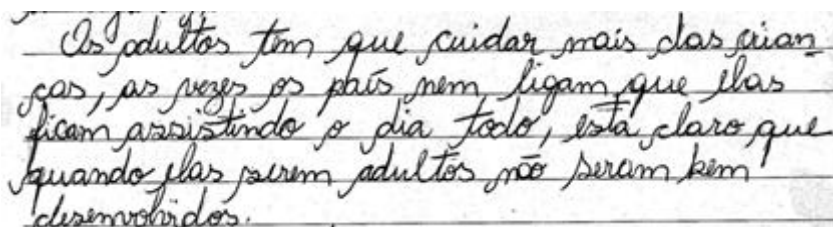 Os adultos tem que cuidar mais das crian
ças, as vezes os país nem ligam que elas
ficam assistindo o dia todo, está claro que
quando elas serem adultos não seram bem
desenvolvidos.